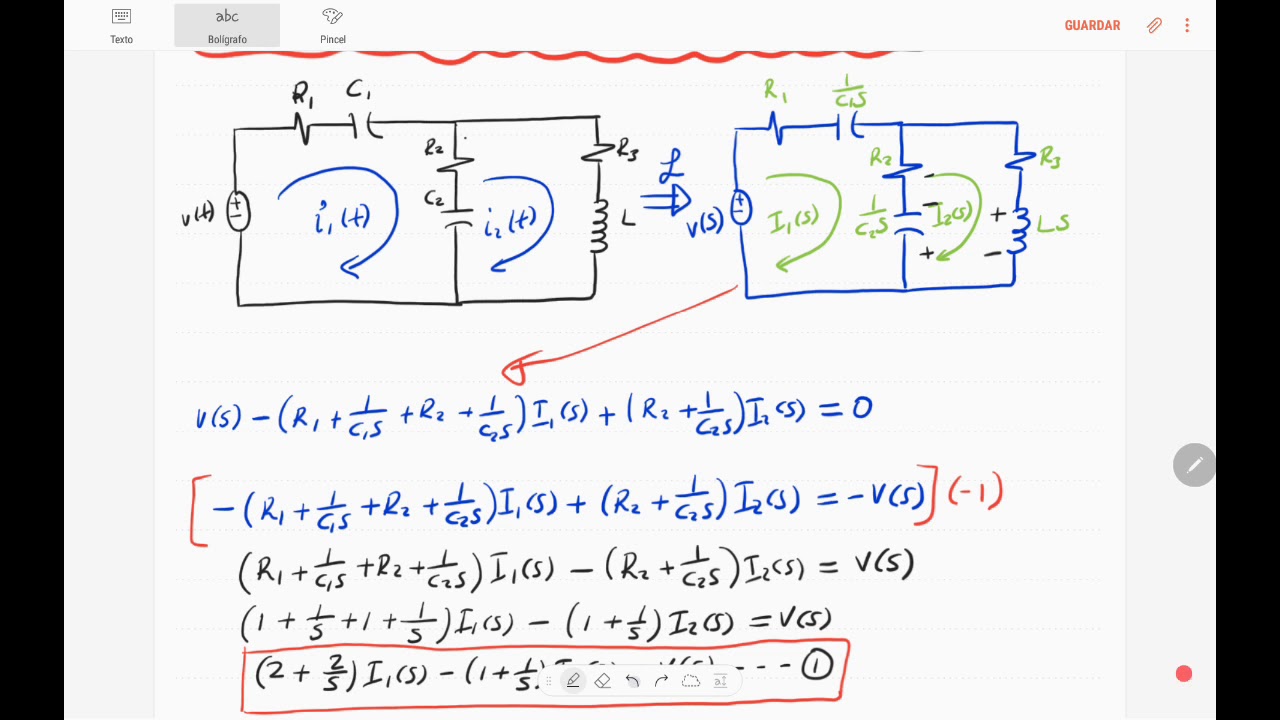 Texto
abc
Bolígrafo
Pincel
GUARDAR
R₁ C₁
R₂
R₃
C₂
v(t)
i₁(t)
i₂(t)
L
ℒ
R₁ 1/C₁S
R₂
R₃
V(s)
I₁(s)
1/C₂S
I₂(s)
LS
V(s) - (R₁ + 1/C₁S + R₂ + 1/C₂S) I₁(s) + (R₂ + 1/C₂S) I₂(s) = 0
[-(R₁ + 1/C₁S + R₂ + 1/C₂S) I₁(s) + (R₂ + 1/C₂S) I₂(s) = -V(s)] (-1)
(R₁ + 1/C₁S + R₂ + 1/C₂S) I₁(s) - (R₂ + 1/C₂S) I₂(s) = V(s)
(1 + 1/S + 1 + 1/S) I₁(s) - (1 + 1/S) I₂(s) = V(s)
(2 + 2/S) I₁(s) - (1 + 1/S) --- ①